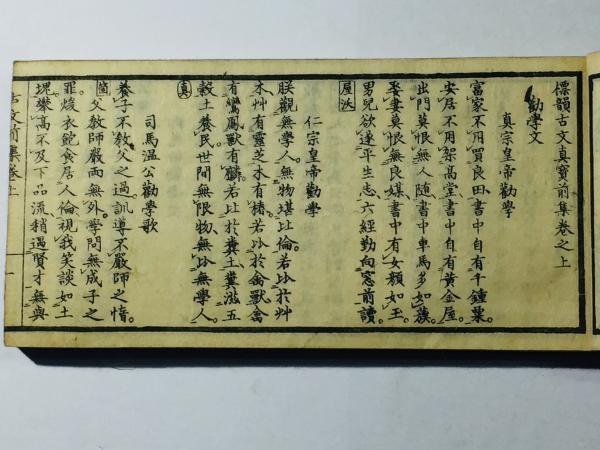 標韻古文真寶前集卷之上
勸學文
真宗皇帝勸學
富家不用買良田。書中自有千鍾粟。
安居不用架高堂。書中自有黃金屋。
出門莫恨無人随。書中車馬多如簇。
娶妻莫恨無良媒。書中有女顏如玉。
男兒欲遂平生志。六經勤向窓前讀。
屋沃
仁宗皇帝勸學
朕觀無學人。無物堪比倫。若比於艸
木。艸有靈芝木有椿。若比於禽獸。禽
有鸞鳳獸有麟。若比於糞土。糞滋五
穀土養民。世間無限物。無比無學人。
真
司馬温公勸學歌
養子不教父之過。訓導不嚴師之惰。
箇 父教師嚴兩無外。學問無成子之
罪。煖衣飽食居人倫。視我笑談如土
塊。攀高不及下品流。稍過賢才無與
古文前集卷上 一